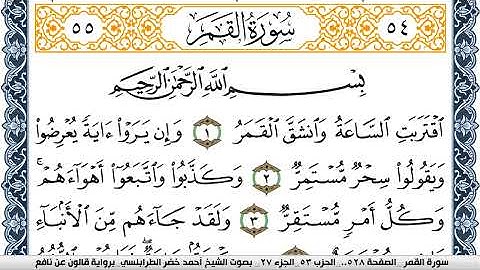 ٥٤ سُورَةُ القَمَرِ ٥٥
بِسْمِ اللَّهِ الرَّحْمَٰنِ الرَّحِيمِ
اَ۪قْتَرَبَتِ السَّاعَةُ وَانشَقَّ الْقَمَرُ ١ وَإِن يَرَوْا۟ ءَايَةً يُعْرِضُوا۟
وَيَقُولُوا۟ سِحْرٌ مُّسْتَمِرٌّ ٢ وَكَذَّبُوا۟ وَاتَّبَعُوا۟ أَهْوَآءَهُمْ ۚ
وَكُلُّ أَمْرٍ مُّسْتَقِرٌّ ٣ وَلَقَدْ جَآءَهُم مِّنَ الْأَنۢبَآءِ
سورة القمر _ الصفحة ٥٢٨_ الحزب ٥٣_ الجزء ٢٧ _ بصوت الشيخ أحمد خضر الطرابلسي_ برواية قالون عن نافع